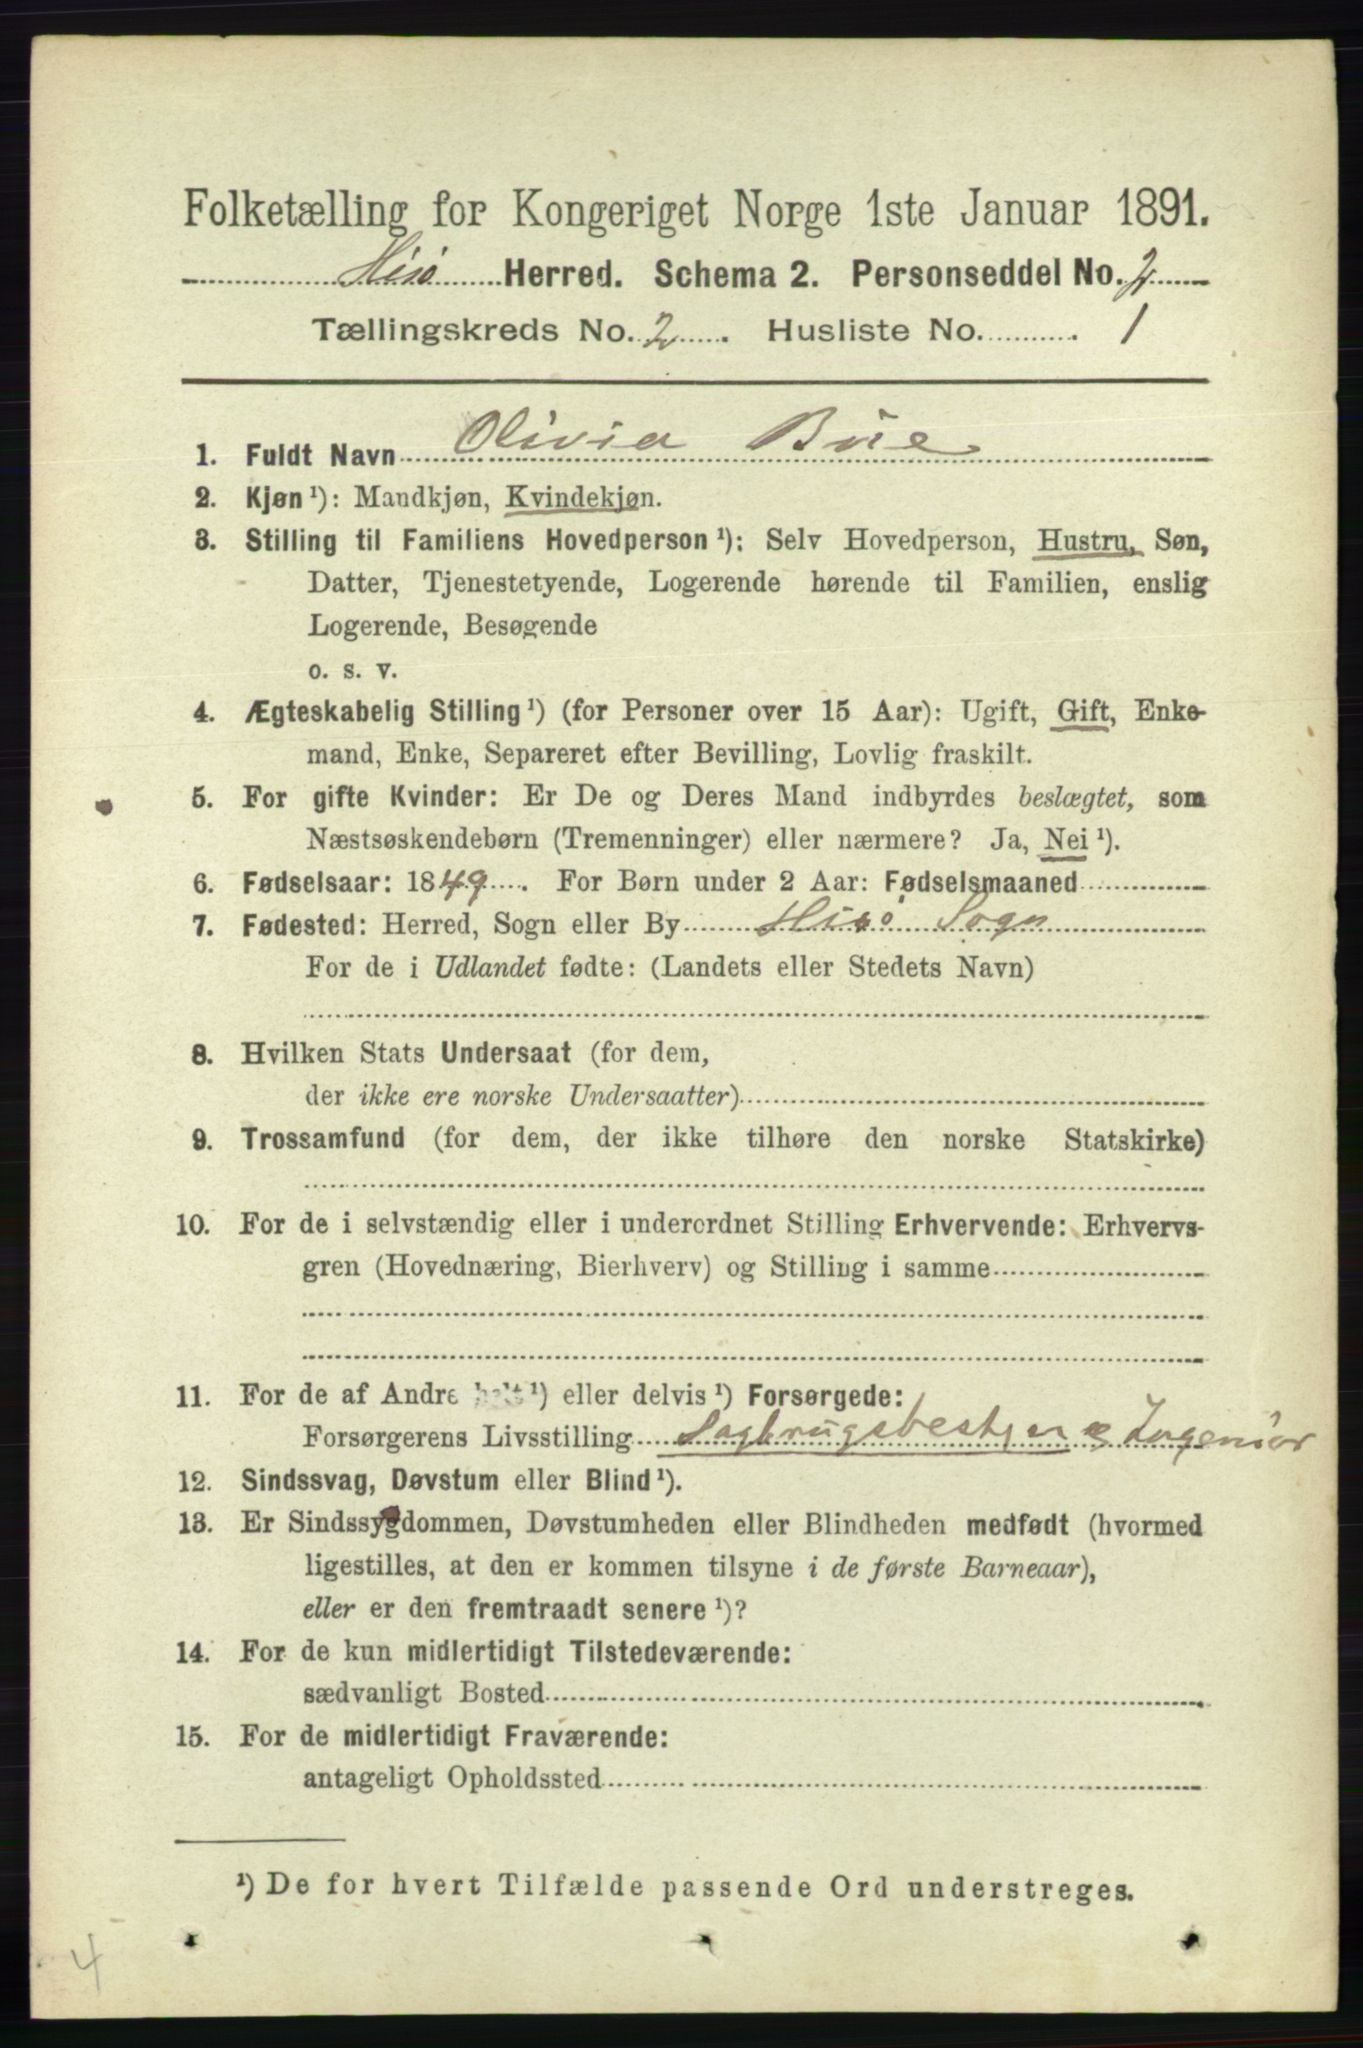 Folketælling for Kongeriget Norge 1ste Januar 1891.
Hisö Herred. Schema 2. Personseddel No. 2
Tællingskreds No. 2. Husliste No. 1
1. Fuldt Navn Olivia Büe
2. Kjøn ¹): Mandkjøn, Kvindekjøn.
3. Stilling til Familiens Hovedperson ¹): Selv Hovedperson, Hustru, Søn,
Datter, Tjenestetyende, Logerende hørende til Familien, enslig
Logerende, Besøgende
o. s. v.
4. Ægteskabelig Stilling ¹) (for Personer over 15 Aar): Ugift, Gift, Enke-
mand, Enke, Separeret efter Bevilling, Lovlig fraskilt.
5. For gifte Kvinder: Er De og Deres Mand indbyrdes beslægtet, som
Næstsøskendebørn (Tremenninger) eller nærmere? Ja, Nei ¹).
6. Fødselsaar: 1849. For Børn under 2 Aar: Fødselsmaaned
7. Fødested: Herred, Sogn eller By Hisö Sogn
For de i Udlandet fødte: (Landets eller Stedets Navn)
8. Hvilken Stats Undersaat (for dem,
der ikke ere norske Undersaatter)
9. Trossamfund (for dem, der ikke tilhøre den norske Statskirke)
10. For de i selvstændig eller i underordnet Stilling Erhvervende: Erhvervs-
gren (Hovednæring, Bierhverv) og Stilling i samme
11. For de af Andre helt ¹) eller delvis ¹) Forsørgede:
Forsørgerens Livsstilling Sagbrugsbestyer & Ingeniör
12. Sindssvag, Døvstum eller Blind ¹).
13. Er Sindssygdommen, Døvstumheden eller Blindheden medfødt (hvormed
ligestilles, at den er kommen tilsyne i de første Barneaar),
eller er den fremtraadt senere ¹)?
14. For de kun midlertidigt Tilstedeværende:
sædvanligt Bosted
15. For de midlertidigt Fraværende:
antageligt Opholdssted
¹) De for hvert Tilfælde passende Ord understreges.
4